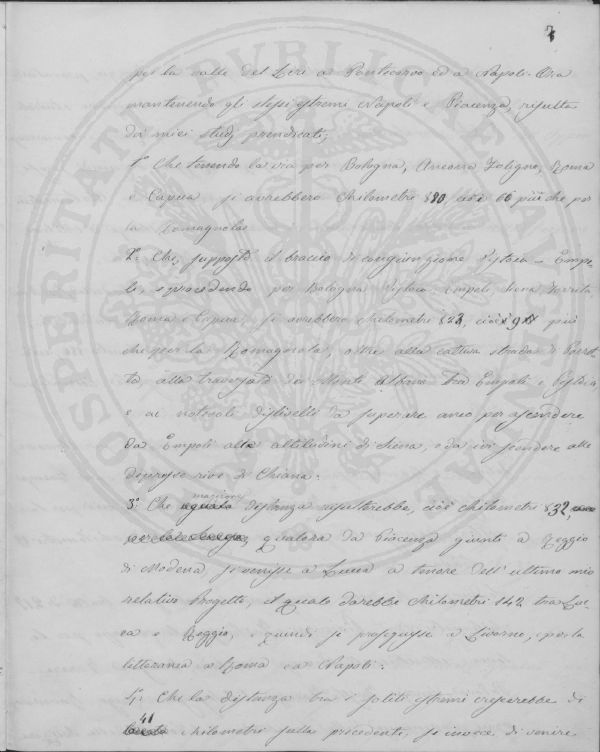 7
per la valle del Liri a Pontecorvo ed a Napoli. Ora
mantenendo gli stessi estremi Napoli e Piacenza, risulta
da' miei studj prendicati,
1.° Che tenendo la via per Bologna, Ancona Foligno, Roma
e Capua si avrebbero Chilometri 890, cioè 66 più che per
la Romagnola
2.° Che, supposto il braccio di congiunzione Pistoia - Empo-
li, e procedendo per Bologna Pistoia, Empoli Siena
Roma e Capua si avrebbero chilometri cioè più
che per la Romagnola, oltre alla cattiva strada di Porret-
ta, alla traversata del Monte Albano tra Empoli e Pistoia
e ai notevoli dislivelli da superare anco per ascendere
da Empoli alle altitudini di Siena, e da ivi scendere alle
depresse rive di Chiana:
3.° Che maggiore distanza risulterebbe, cioè chilometri 832,
qualora da Piacenza giunti a Reggio
di Modena si venisse a Lucca a tenore dell'ultimo mio
relativo Progetto, il quale darebbe Chilometri 142 tra Luc-
ca e Reggio, e quindi si proseguisse a Livorno, e per la
litteranea a Roma ed a Napoli:
4.° Che la distanza tra i soliti estremi crescerebbe di
41 chilometri sulla precedente, se invece di venire
PROSPERITATI PVBLICAE AVGENDAE